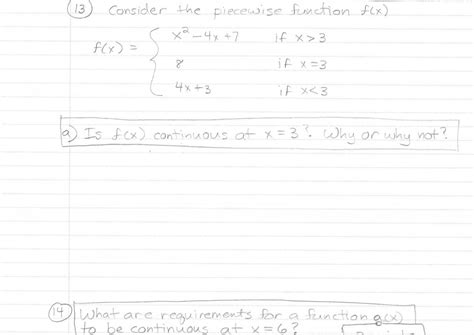 13 Consider the piecewise function f(x)
x² - 4x + 7 if x > 3
f(x) = { 8 if x = 3
4x + 3 if x < 3
a) Is f(x) continuous at x = 3? Why or why not?
14 What are requirements for a function g(x)
to be continuous at x = 6?